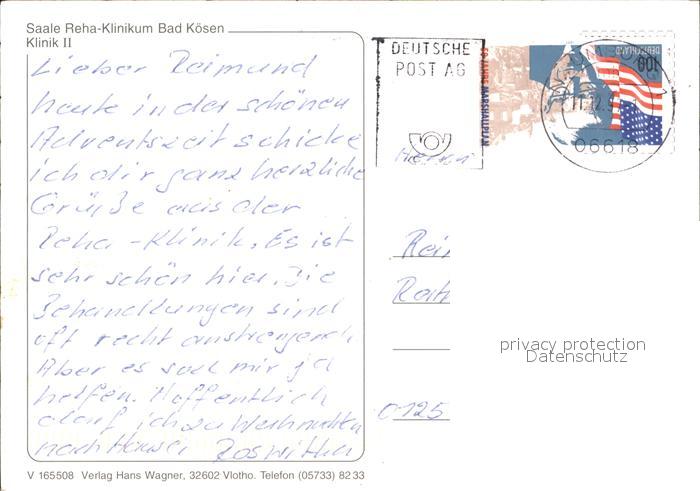 Saale Reha-Klinikum Bad Kösen
Klinik II
Lieber Reimund
heute in der schönen
Adventszeit schicke
ich dir ganz herzliche
Grüße aus der
Reha-Klinik. Es ist
sehr schön hier. Die
Behandlungen sind
oft recht anstrengend.
Aber es soll mir ja
helfen. Hoffentlich
darf ich zu Weihnachten
nach Hause. Roswitha
V 165508 Verlag Hans Wagner, 32602 Vlotho. Telefon (05733) 8233
DEUTSCHE
POST AG
50 JAHRE MARSHALLPLAN
DEUTSCHLAND
100
06618
Herrn
Rei
Rath
0125
privacy protection
Datenschutz